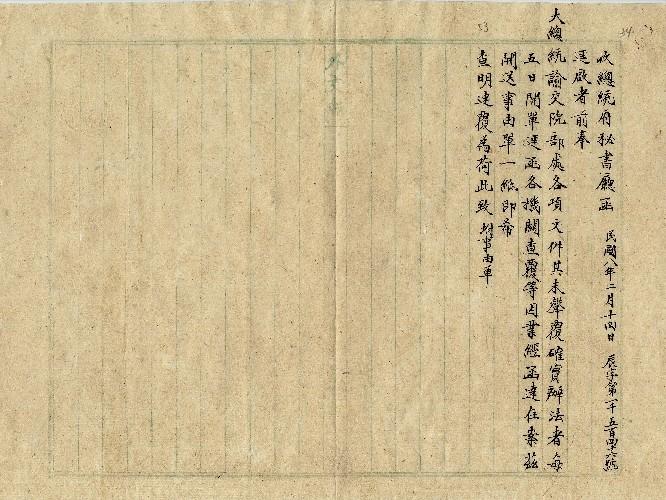 收總統府秘書廳函 民國八年二月十四日 辰字第一千五百四十六號
逕啟者前奉
大總統諭交院部處各項文件其未聲覆確實辦法者每
五日開單逕函各機關查覆等因業經函達在案茲
開送事由單一紙即希
查明速覆為荷此致 附事由單
53